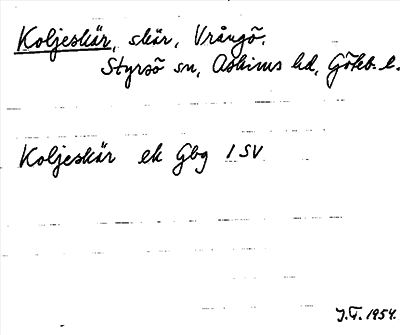 Koljeskär, skär, Vrångö.
Styrsö sn, Askims hd, Göteb. l.
Koljeskär ek Gbg 1 SV
J.G. 1954.